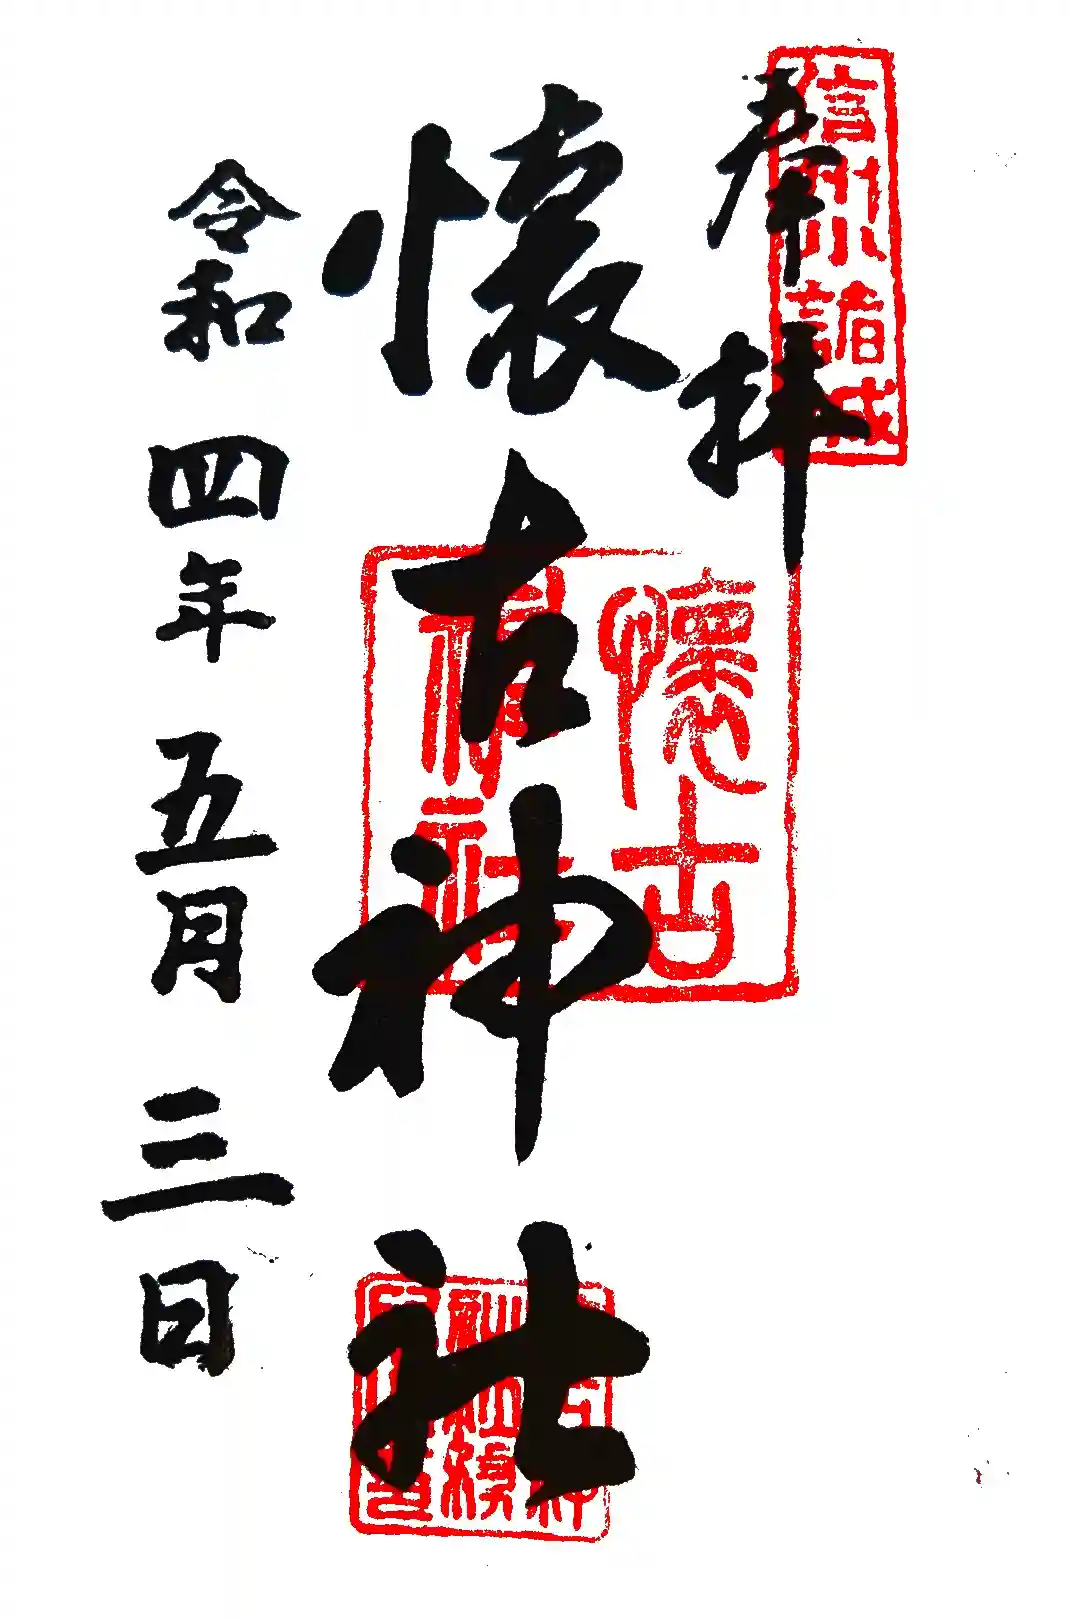 奉拝
信州小諸城
懐古神社
懐古
神社
令和四年五月三日